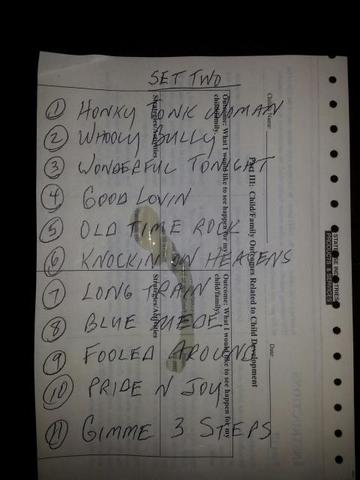 SET TWO
1 HONKY TONK WOMAN
2 WHOOLY BULLY
3 WONDERFUL TONIGHT
4 GOOD LOVIN
5 OLD TIME ROCK
6 KNOCKIN ON HEAVENS
7 LONG TRAIN
8 BLUE SUEDE
9 FOOLED AROUND
10 PRIDE N JOY
11 GIMME 3 STEPS
Child's Name:
Date
Part III: Child/Family Outcomes Related to Child Development
Outcome: What I would like to see happen for my
child/family.
Strategies/Activities
Outcome: What I would like to see happen for my
child/family.
Strategies/Activities
PRODUCTS & SERVICES